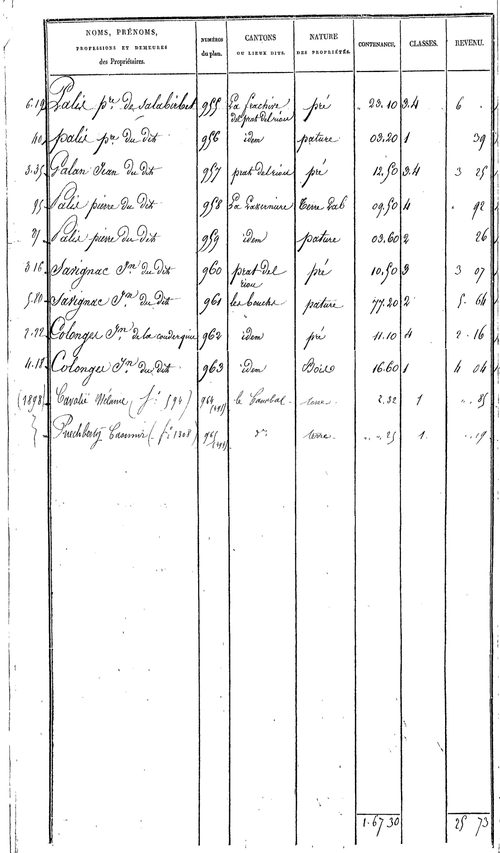 NOMS, PRÉNOMS, PROFESSIONS ET DEMEURES des Propriétaires. NUMÉROS du plan. CANTONS OU LIEUX DITS. NATURE DES PROPRIÉTÉS. CONTENANCE. CLASSES. REVENU.
6.19 Palis pre. de Salabérbet 955 La frachive del prat delrieu pré 23.10 3.4 6 .
40 palis pre. du dit 956 idem pature 03.20 1 39
3.35 Galan Jean du dit 957 prat delrieu pré 12.50 3.4 3 25
95 Palis pierre du dit 958 La Laserniere Terre Lab 09.50 4 . 92
27 Palis pierre du dit 959 idem pature 03.60 2 26
3.16 Savignac Jn. du dit 960 prat del rieu pré 10.50 3 3 07
5.80 Savignac Jn. du dit 961 les bouche pature 77.20 2 5. 64
2.22 Colonges Jn. de la couderquine 962 idem pré 11.10 4 2.16
4.18 Colonges Jn. du dit 963 idem Bois 16.60 1 4 04
(1898) Cavalié Mélanie (fo. 594) 964 le Caurbal terre 2.32 1 .. 85
Puechberty Casimir (fo. 1308) 965 do. terre .. .. 25 1. .. 19
1.67 30 25 73